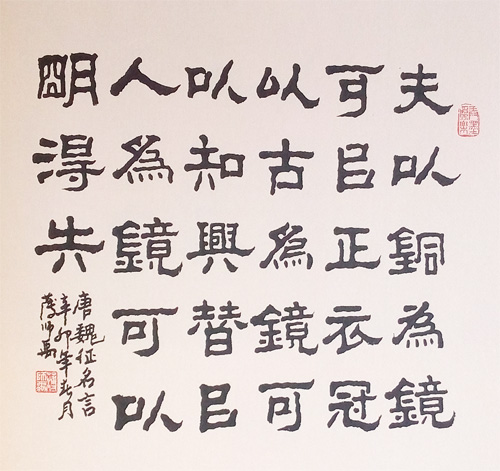 夫以銅為鏡
可㠯正衣冠
以古為鏡可
以知興替㠯
人為鏡可以
明得失
唐魏征名言
辛卯年春月